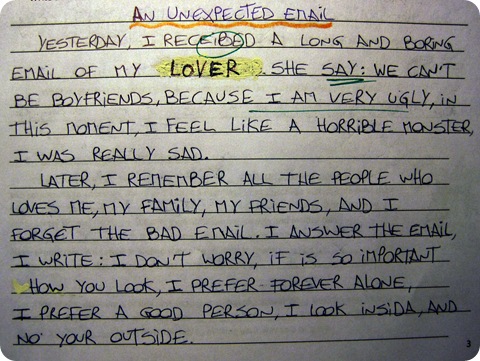 AN UNEXPECTED EMAIL
YESTERDAY, I RECEIBED A LONG AND BORING
EMAIL OF MY LOVER. SHE SAY: WE CAN'T
BE BOYFRIENDS, BECAUSE I AM VERY UGLY, IN
THIS MOMENT, I FEEL LIKE A HORRIBLE MONSTER,
I WAS REALLY SAD.
LATER, I REMEMBER ALL THE PEOPLE WHO
LOVES ME, MY FAMILY, MY FRIENDS, AND I
FORGET THE BAD EMAIL. I ANSWER THE EMAIL,
I WRITE: I DON'T WORRY, IF IS SO IMPORTANT
HOW YOU LOOK, I PREFER FOREVER ALONE,
I PREFER A GOOD PERSON, I LOOK INSIDA, AND
NO YOUR OUTSIDE.
3